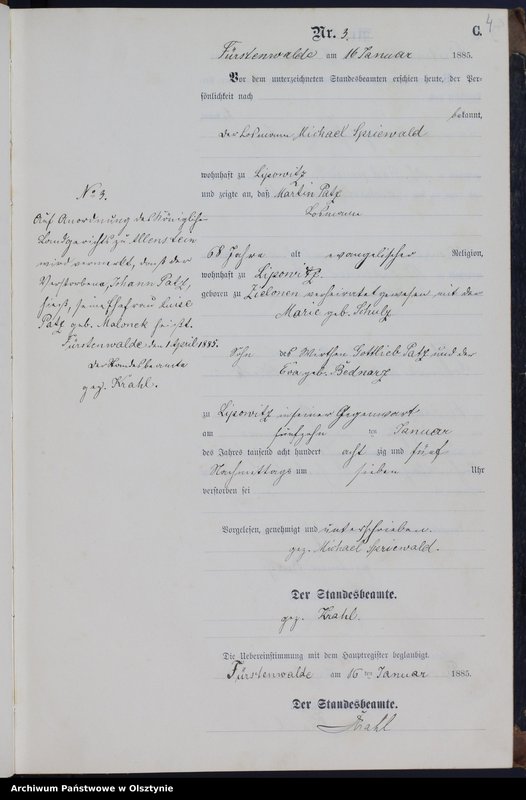 4
Nr. 3.
C.
Fürstenwalde am 16 Januar 1885.
Vor dem unterzeichneten Standesbeamten erschien heute, der Per-
sönlichkeit nach
bekannt,
der Losmann Michael Spriewald
wohnhaft zu Lipowitz
und zeigte an, daß Martin Patz
Losmann
68 Jahre alt evangelischer Religion,
wohnhaft zu Lipowitz
geboren zu Zielonen verheirathet gewesen mit der
Marie geb. Schulz
Sohn des Wirthen Gottlieb Patz und der
Eva geb. Bednarz
zu Lipowitz in seiner Gegenwart
am fünfzehn ten Januar
des Jahres tausend acht hundert acht zig und fünf
Nachmittags um sieben Uhr
verstorben sei
Vorgelesen, genehmigt und unterschrieben.
gez. Michael Spriewald.
Der Standesbeamte.
gez. Krahl.
Die Uebereinstimmung mit dem Hauptregister beglaubigt.
Fürstenwalde am 16 ten Januar 1885.
Der Standesbeamte.
Krahl
No 3.
Auf Anordnung des Königliche
Landgerichts zu Allenstein
wird vermerkt, daß der
Verstorbene Johann Patz,
hieß, seine Ehefrau Luise
Patz geb. Malonek heißt.
Fürstenwalde den 1 April 1885.
der Standesbeamte
gez. Krahl.
Archiwum Państwowe w Olsztynie